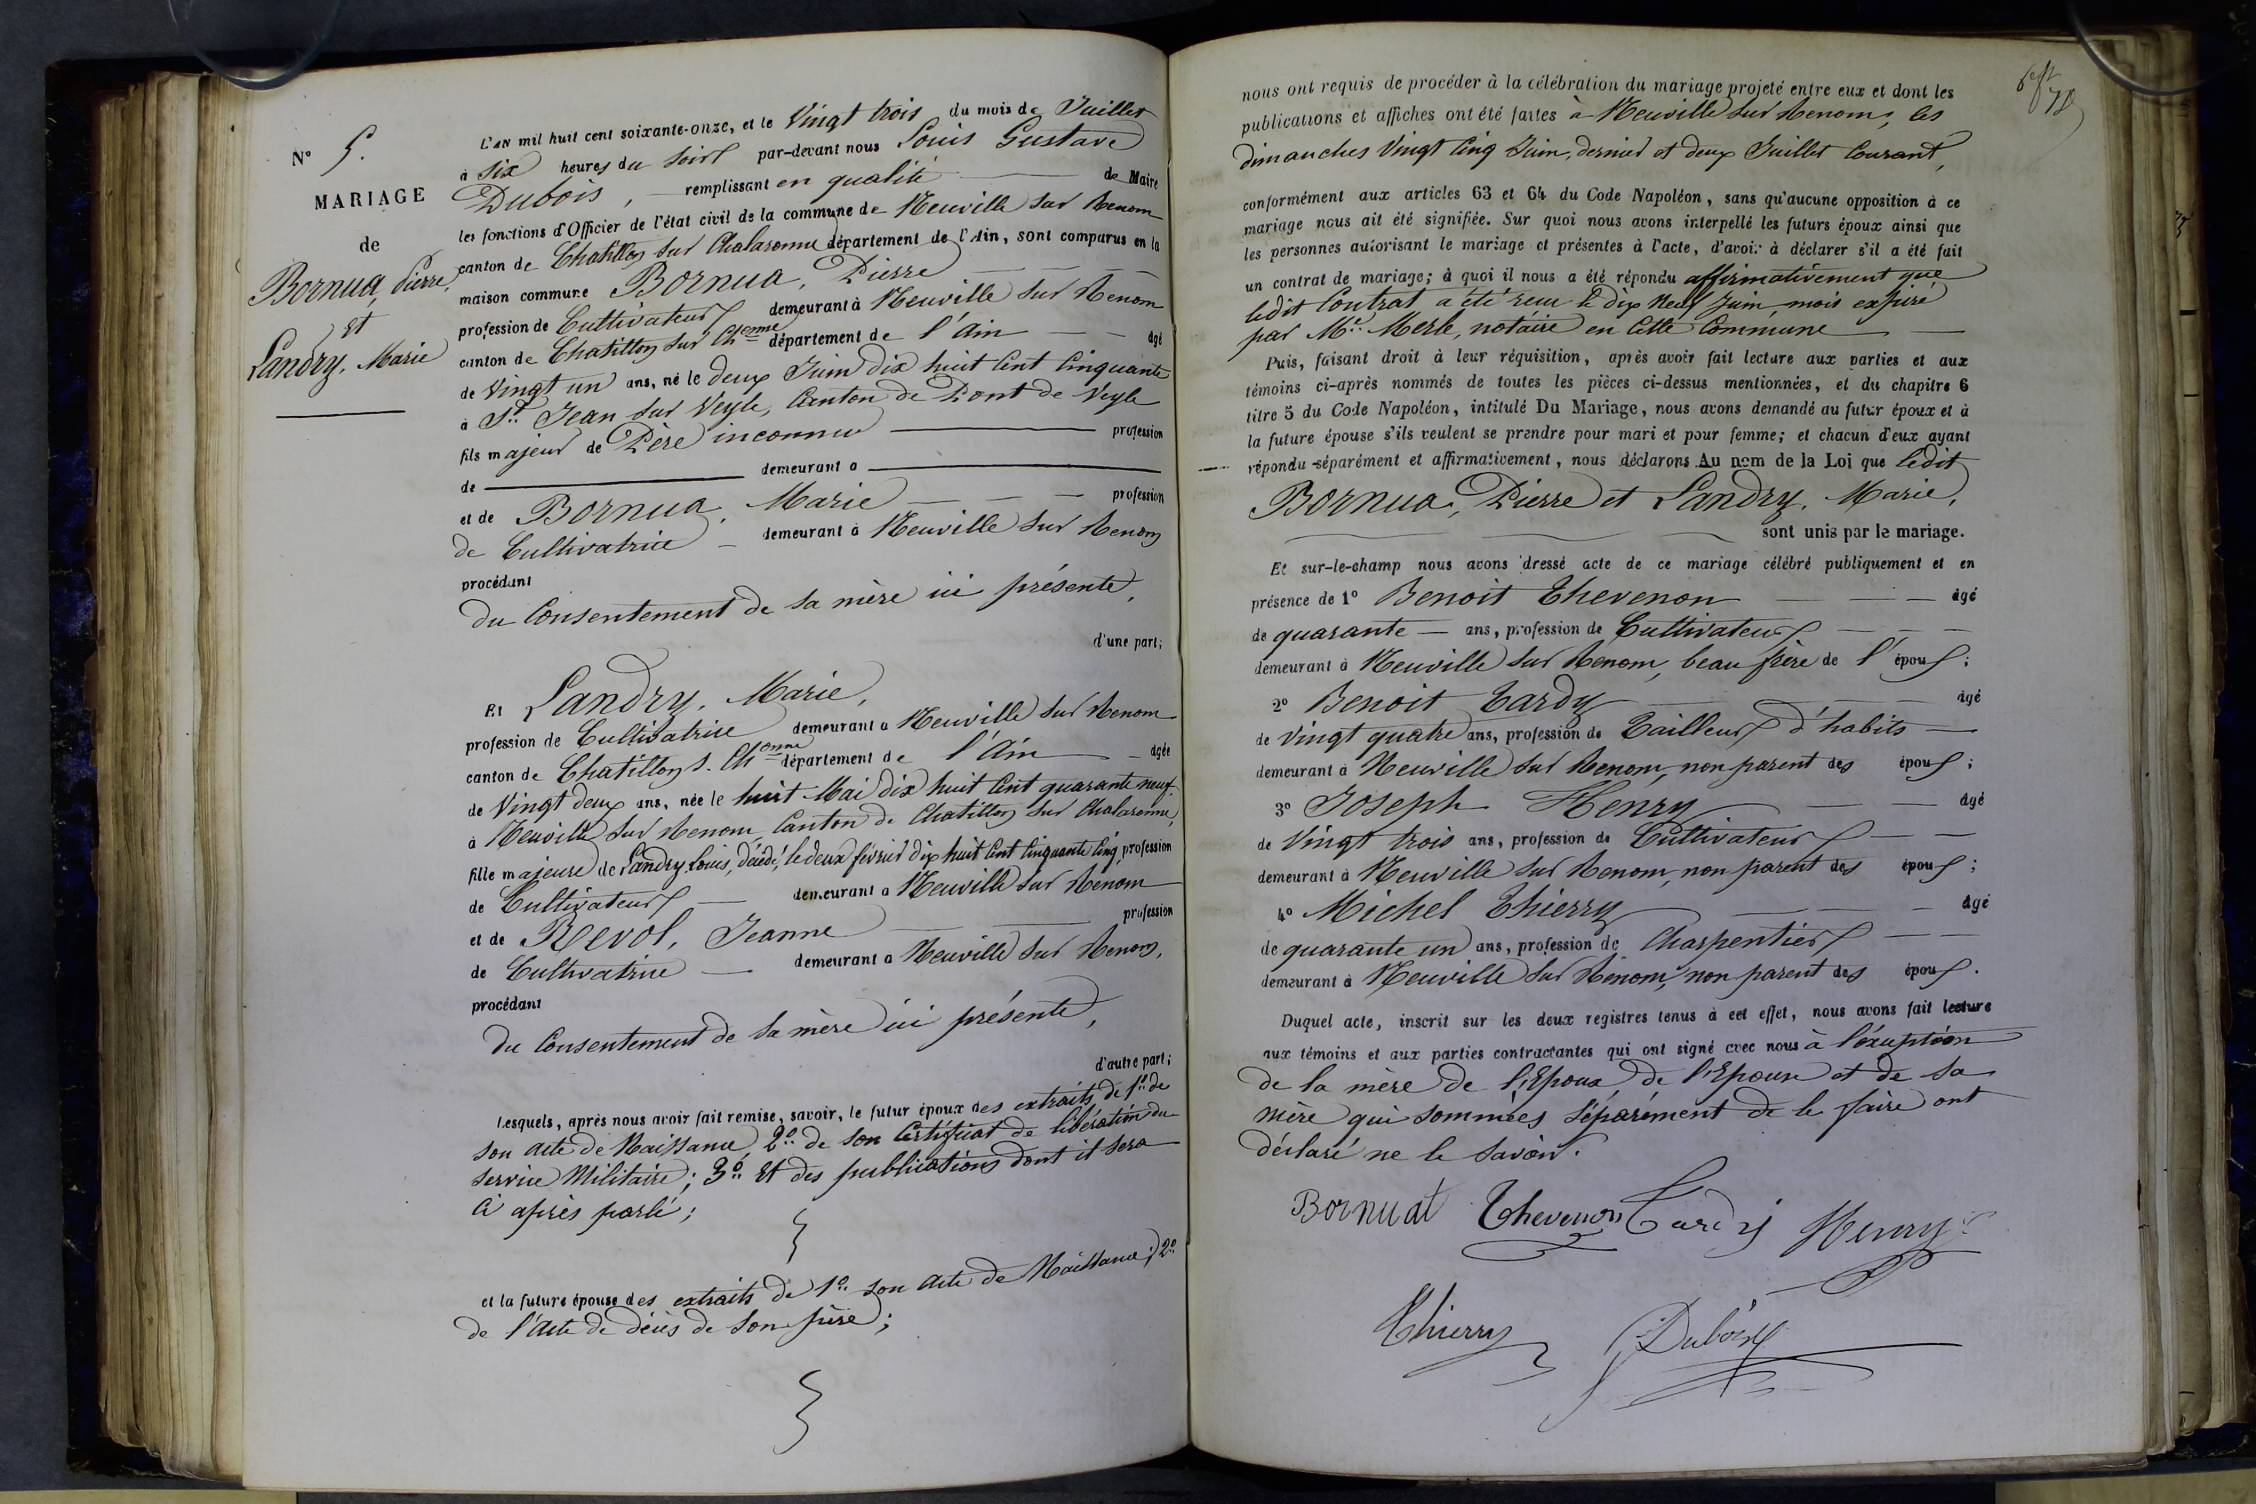 N° 5.
MARIAGE
de
Bornua, Pierre,
et
Landry, Marie
L'AN mil huit cent soixante-onze, et le Vingt trois du mois de Juillet
à Six heures du Soir par-devant nous Louis Gustave
Dubois, remplissant en qualité de Maire
les fonctions d'Officier de l'état civil de la commune de Neuville sur Renom
canton de Chatillon sur Chalaronne département de l'Ain, sont comparus en la
maison commune Bornua, Pierre
profession de Cultivateur demeurant à Neuville sur Renom
canton de Chatillon sur Chonne département de l'Ain âgé
de Vingt un ans, né le deux Juin dix huit Cent Cinquante
à St. Jean sur Veyle, Canton de Pont de Veyle
fils majeur de Père inconnu profession
de demeurant à
et de Bornua, Marie profession
de Cultivatrice demeurant à Neuville sur Renom
procédant
du Consentement de sa mère ici présente,
d'une part;
Et Landry, Marie,
profession de Cultivatrice demeurant à Neuville sur Renom
canton de Chatillon s. Chonne département de l'Ain âgée
de Vingt deux ans, née le huit Mai dix huit Cent quarante neuf
à Neuville sur Renom Canton de Chatillon sur Chalaronne,
fille majeure de Landry Louis, décédé, le deux février dix huit Cent Cinquante Cinq, profession
de Cultivateur demeurant à Neuville sur Renom
et de Revol, Jeanne profession
de Cultivatrice demeurant à Neuville sur Renom,
procédant
du Consentement de sa mère ici présente,
d'autre part;
Lesquels, après nous avoir fait remise, savoir, le futur époux des extraits de 1° de
son acte de Naissance, 2° de son Certificat de libération du
service Militaire; 3° Et des publications dont il sera
Ci après parlé;
et la future épouse des extraits de 1° son acte de Naissance; 2°
de l'acte de décès de son père;
nous ont requis de procéder à la célébration du mariage projeté entre eux et dont les
publications et affiches ont été faites à Neuville sur Renom, les
dimanches Vingt Cinq Juin, dernier et deux Juillet Courant,
conformément aux articles 63 et 64 du Code Napoléon, sans qu'aucune opposition à ce
mariage nous ait été signifiée. Sur quoi nous avons interpellé les futurs époux ainsi que
les personnes autorisant le mariage et présentes à l'acte, d'avoir à déclarer s'il a été fait
un contrat de mariage; à quoi il nous a été répondu affirmativement que
ledit Contrat a été reçu le dix Neuf Juin mois expiré
par Me. Merle, notaire en Cette Commune
Puis, faisant droit à leur réquisition, après avoir fait lecture aux parties et aux
témoins ci-après nommés de toutes les pièces ci-dessus mentionnées, et du chapitre 6
titre 5 du Code Napoléon, intitulé Du Mariage, nous avons demandé au futur époux et à
la future épouse s'ils veulent se prendre pour mari et pour femme; et chacun d'eux ayant
répondu séparément et affirmativement, nous déclarons Au nom de la Loi que ledit
Bornua, Pierre et Landry, Marie,
sont unis par le mariage.
Et sur-le-champ nous avons dressé acte de ce mariage célébré publiquement et en
présence de 1° Benoit Thevenon âgé
de quarante ans, profession de Cultivateur
demeurant à Neuville sur Renom, beau frère de l'époux;
2° Benoit Tardy âgé
de Vingt quatre ans, profession de Tailleur d'habits
demeurant à Neuville sur Renom, non parent des époux;
3° Joseph Henry âgé
de Vingt trois ans, profession de Cultivateur
demeurant à Neuville sur Renom, non parent des époux;
4° Michel Thierry âgé
de quarante un ans, profession de Charpentier
demeurant à Neuville sur Renom, non parent des époux.
Duquel acte, inscrit sur les deux registres tenus à cet effet, nous avons fait lecture
aux témoins et aux parties contractantes qui ont signé avec nous à l'éxception
de la mère de l'Epoux de l'Epouse et de sa
mère qui sommées séparément de le faire ont
déclaré ne le savoir.
Bornuat Thevenon Tardy Henry
Thierry Dubois